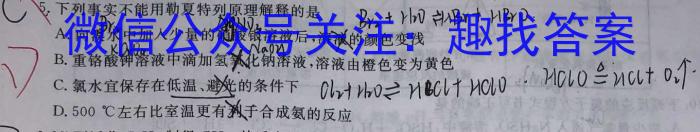 5. 下列事实不能用勒夏特列原理解释的是 Br₂ + H₂O ⇌ HBr + HBrO
微信公众号关注：趣找答案
A. 向溴水中加入少量的硝酸银溶液后,溶液的颜色变浅
B. 重铬酸钾溶液中滴加氢氧化钠溶液,溶液由橙色变为黄色
C. 氯水宜保存在低温、避光的条件下 Cl₂+H₂O ⇌ HCl + HClO · HClO ≙ HCl + O₂↑
D. 500 ℃左右比室温更有利于合成氨的反应